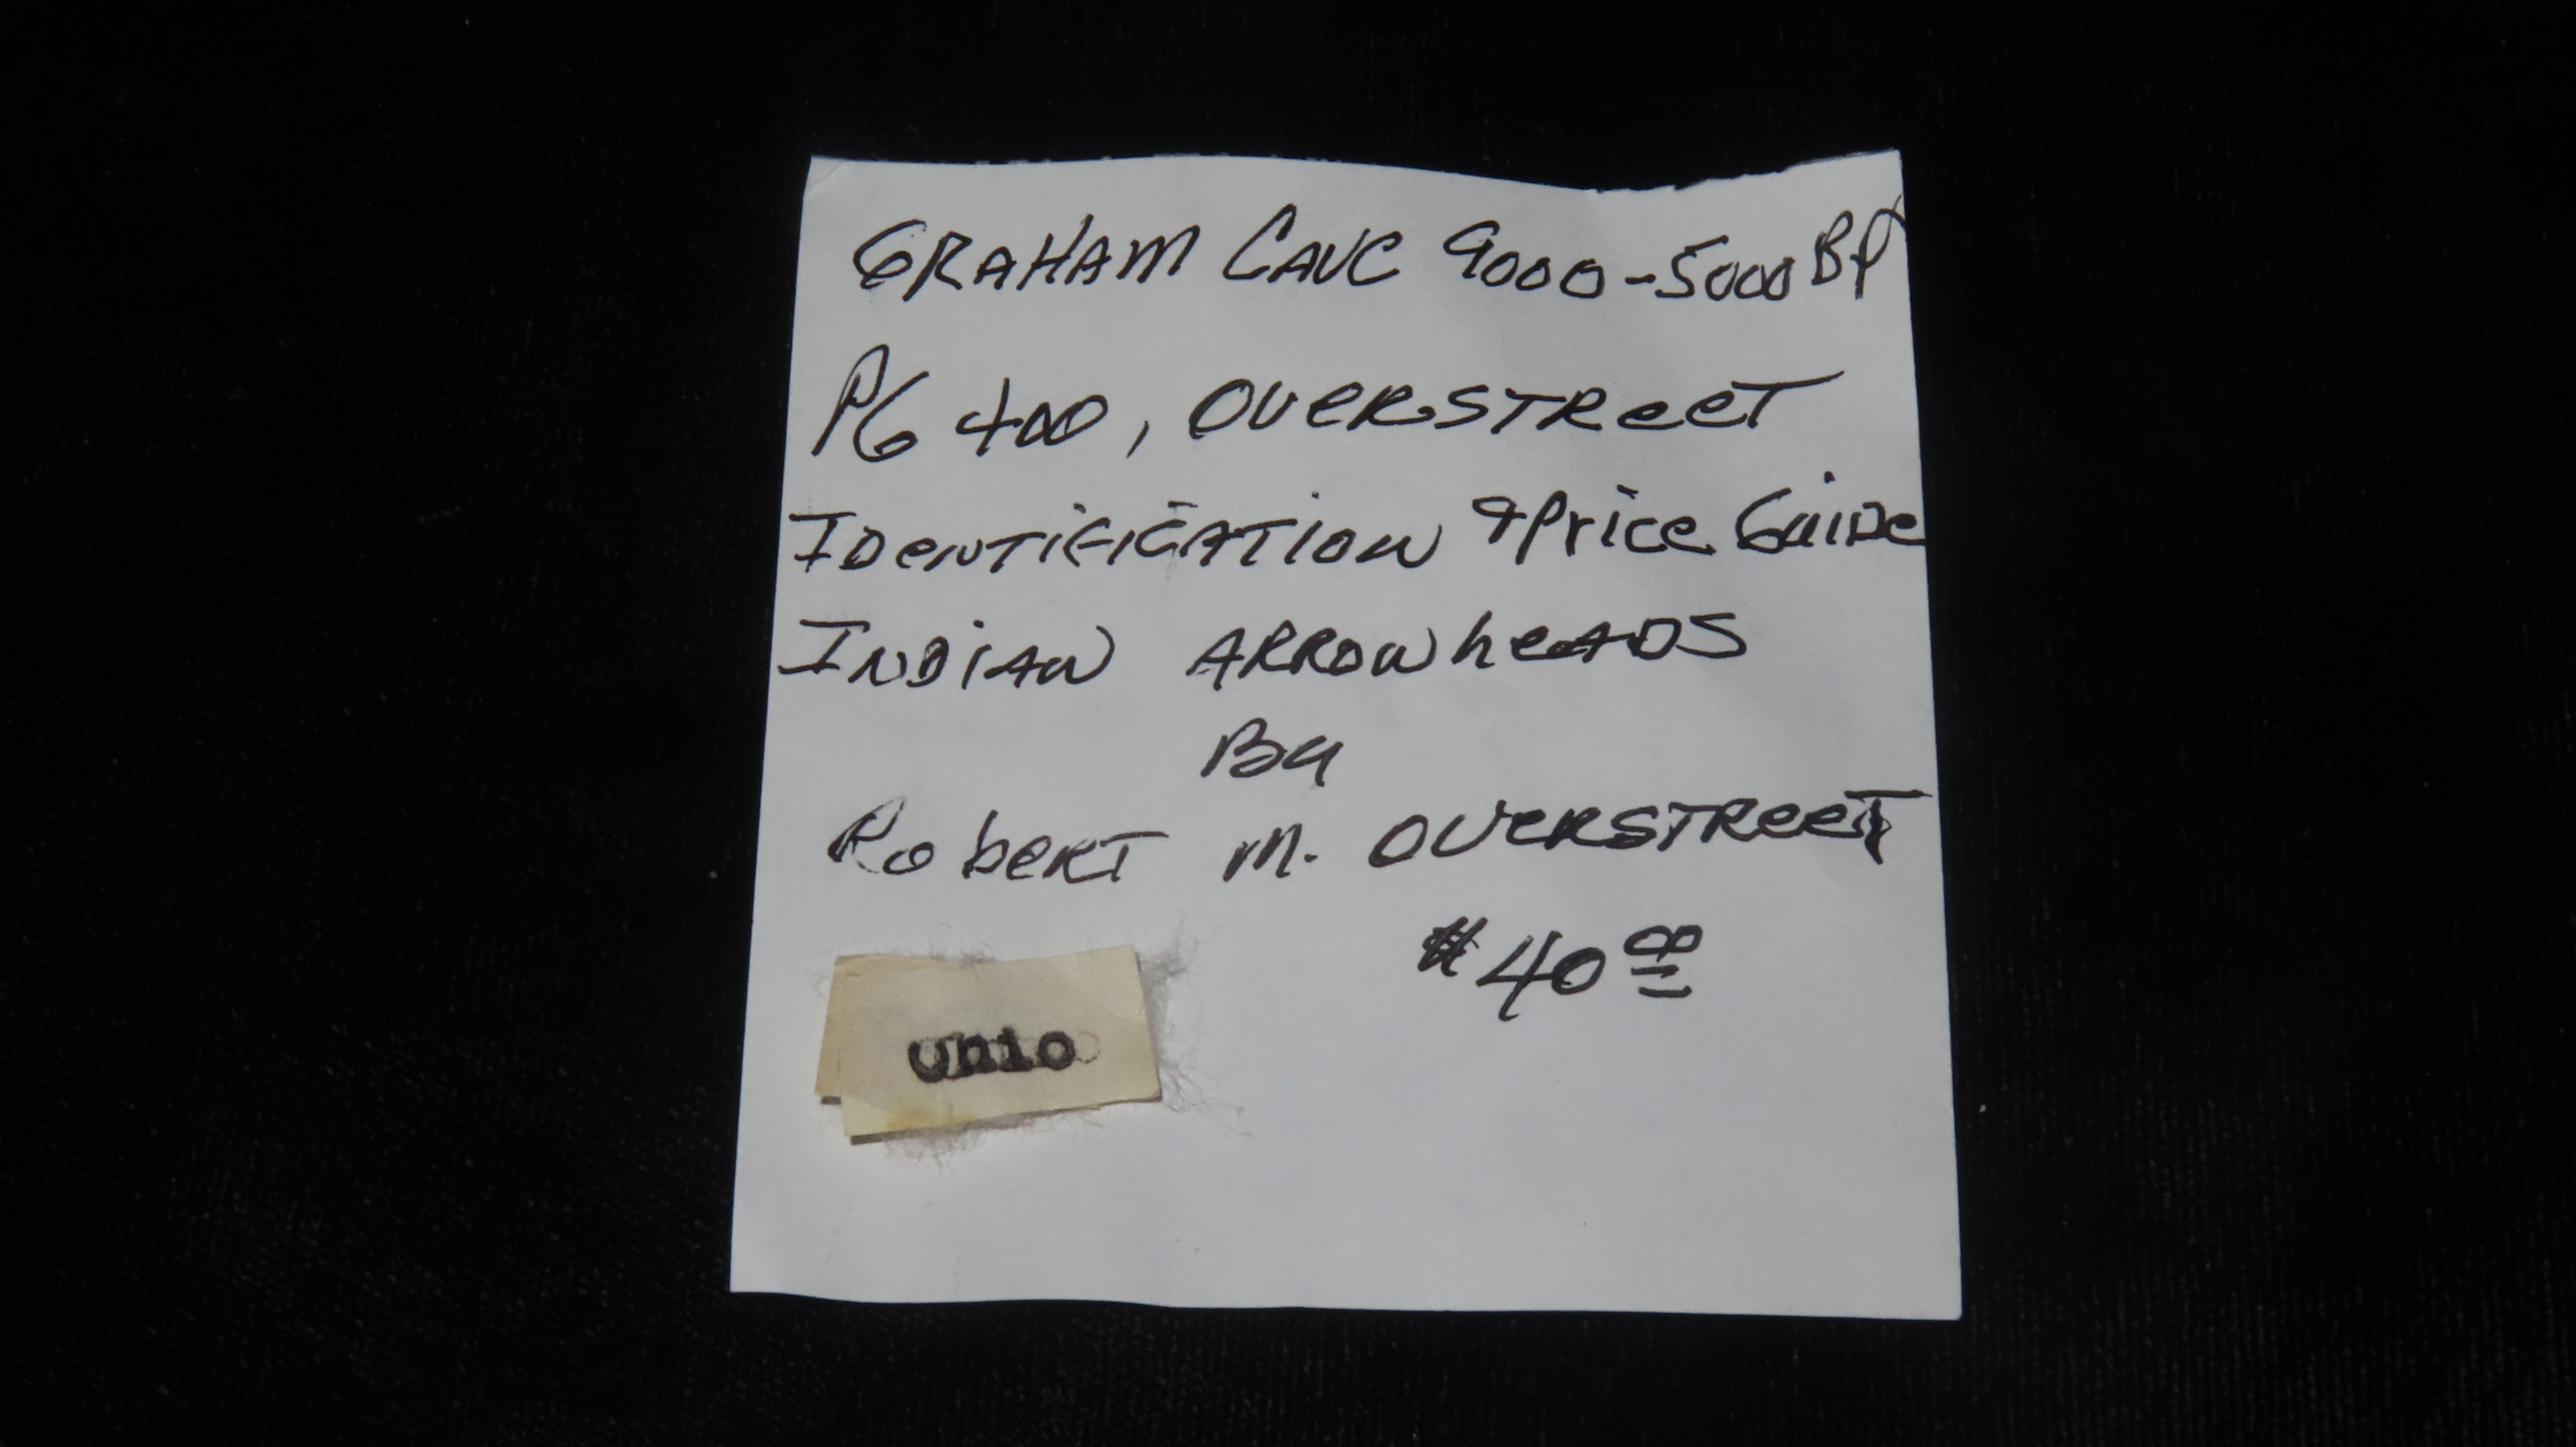 GRAHAM CAVE 9000-5000 BP
PG 400, OVERSTREET
IDENTIFICATION & Price GuiDe
INDIAN ARROWheADS
By
RobeRT M. OVERSTREET
$40 00
Ohio